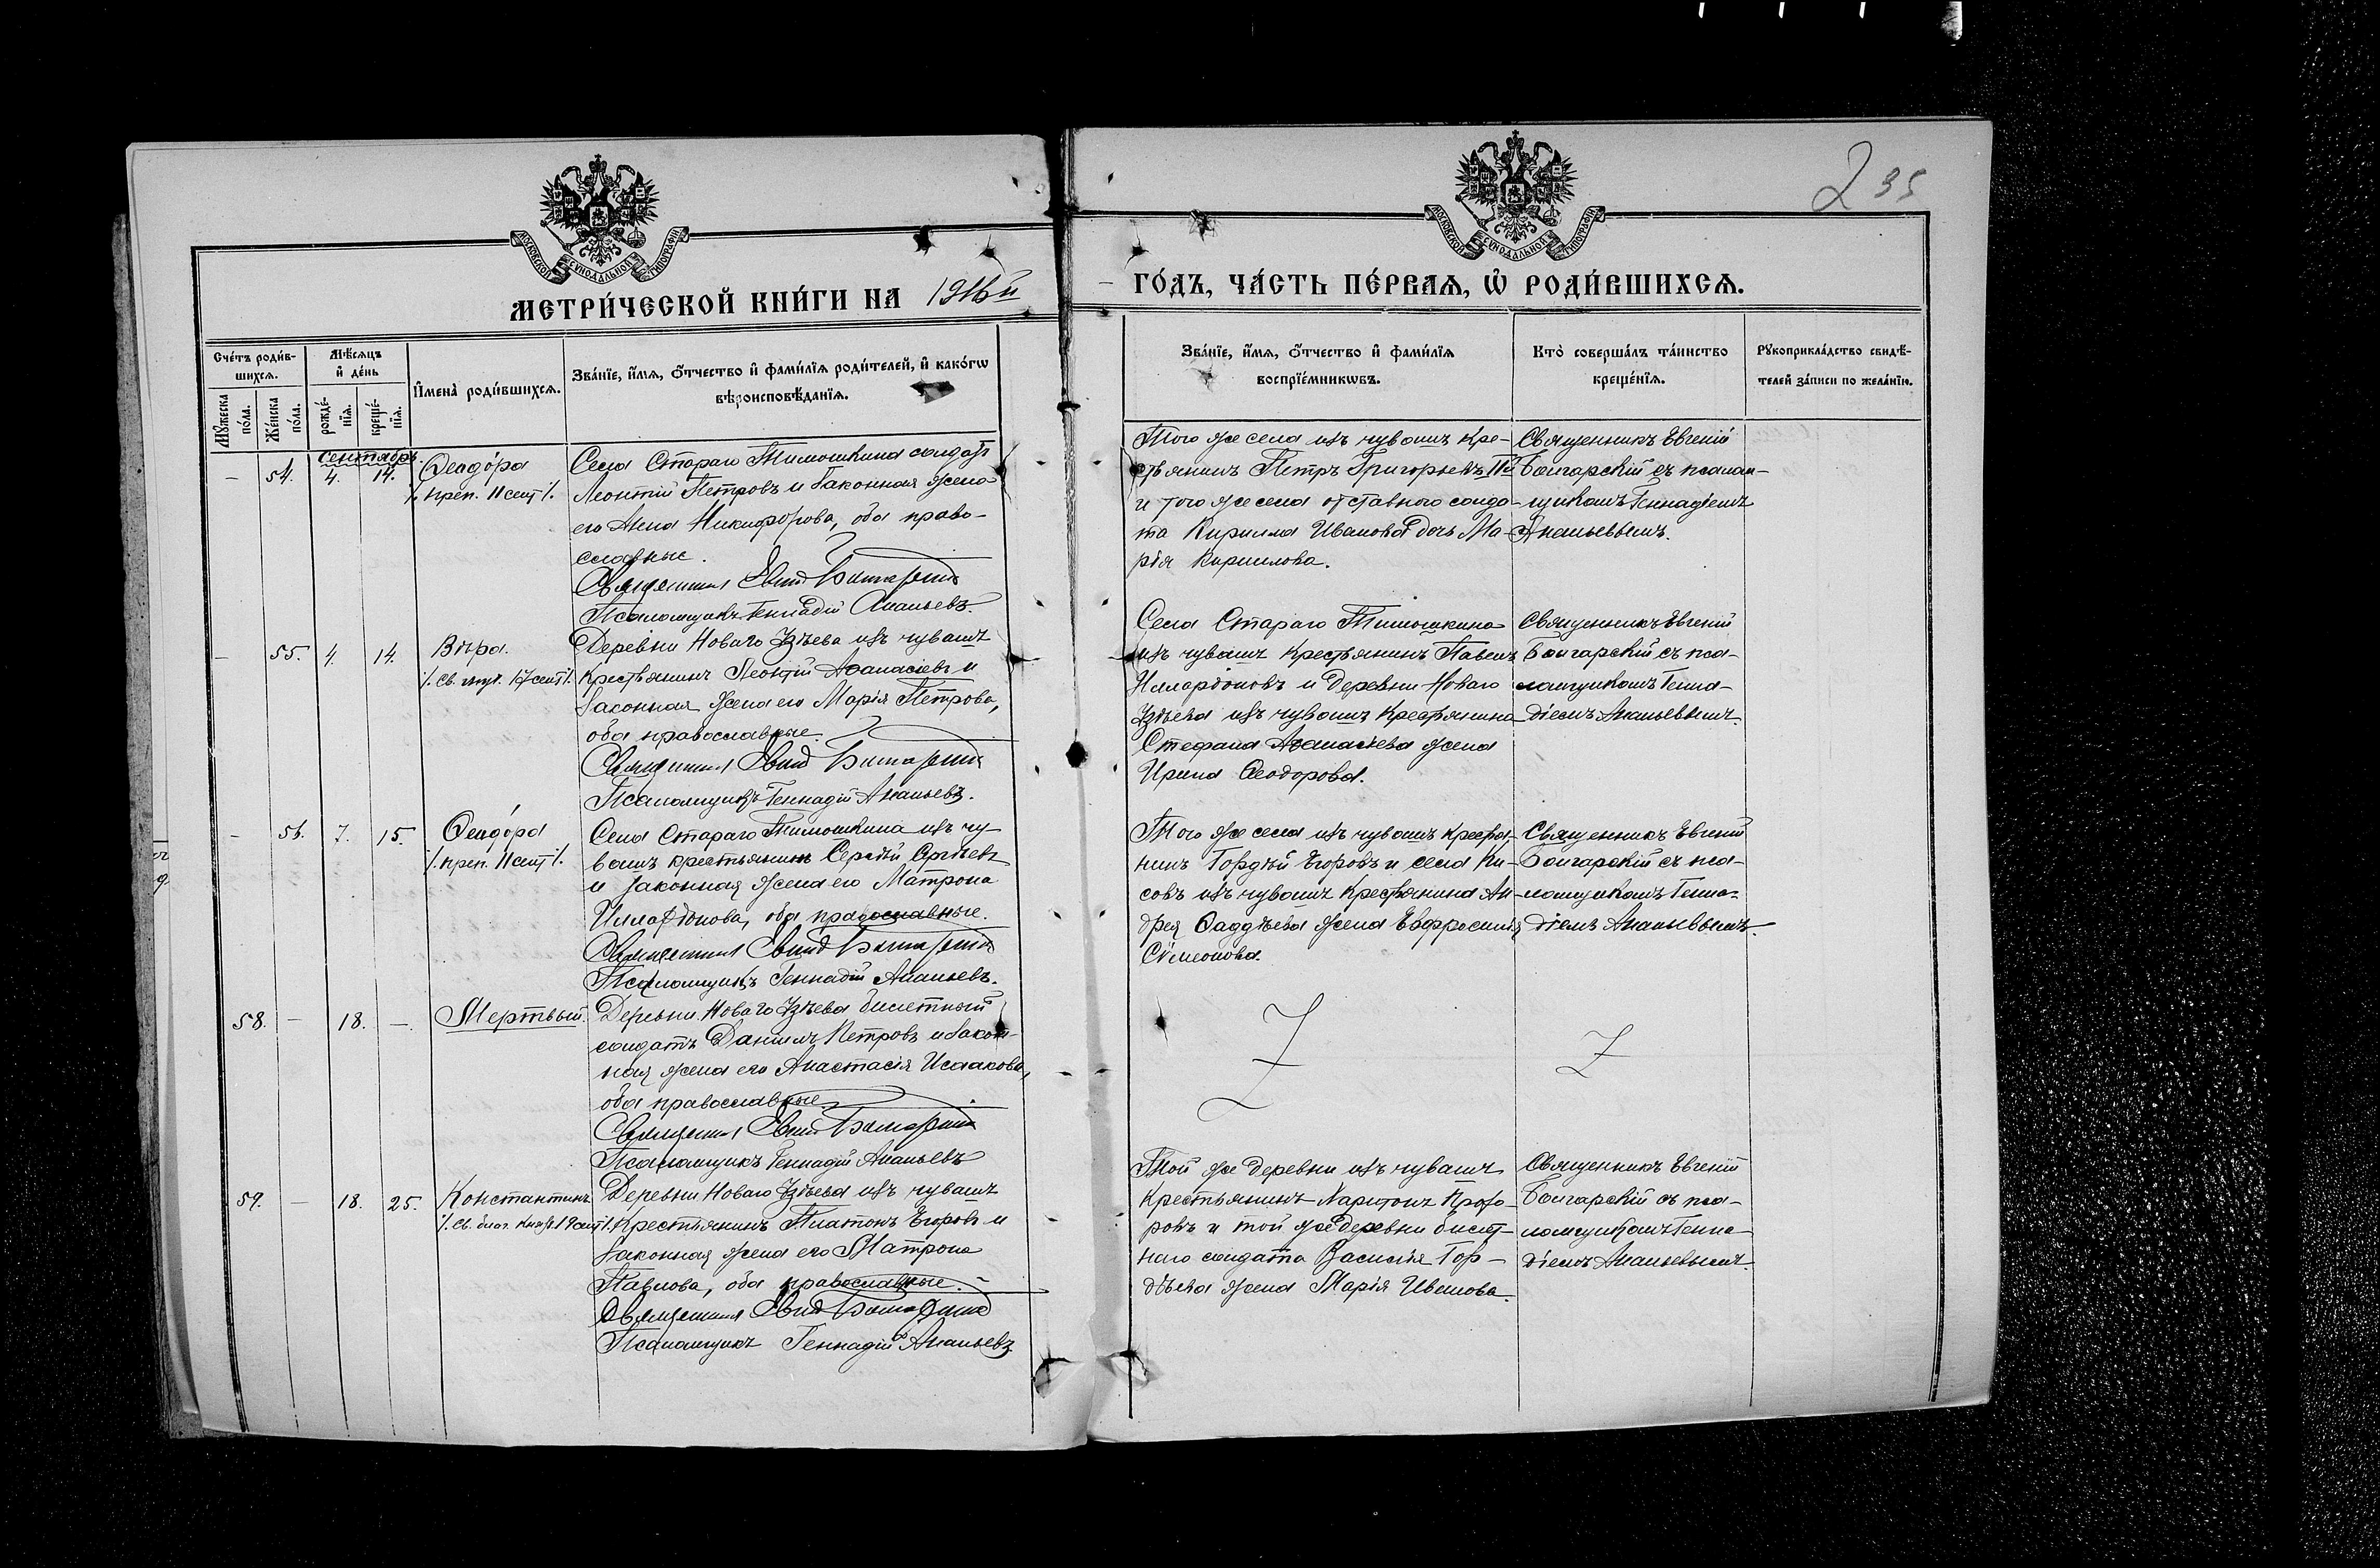 235
МОСКОВСКОЙ СѴНОДАЛЬНОЙ ТИПОГРАФІИ
МОСКОВСКОЙ СѴНОДАЛЬНОЙ ТИПОГРАФІИ
МЕТРИ́ЧЕСКОЙ КНИ́ГИ НА 1916й
ГО́ДЪ, ЧА́СТЬ ПЕ́РВАЯ, Ѡ҆ РОДИ́ВШИХСѦ.
Сче́тъ роди́в-
шихсѧ.
Мꙋ́жеска по́ла.
Же́нска по́ла.
Мѣ́сѧцъ и҆ де́нь
рожде́-нїѧ.
креще́-нїѧ.
И҆мена̀ роди́вшихсѧ.
Зва́нїе, и҆́мѧ, ѻ҆́тчество и҆ фами́лїѧ роди́телей, и҆ како́гѡ
вѣроисповѣ́данїѧ.
Зва́нїе, и҆́мѧ, ѻ҆́тчество и҆ фами́лїѧ
воспрїе́мникѡвъ.
Кто̀ соверша́лъ та́инство
креще́нїѧ.
Рꙋкоприкла́дство свидѣ́-
телей за́писи по жела́нїю.
Сентябрь.
– 54. 4. 14. Ѳеодо́ра
/. преп. 11 сент /.
Села Стараго Тимошкина солдатъ
Леонтій Петровъ и законная жена
его Анна Никифорова, оба право-
славные.
Священникъ Евгеній Болгарскій
Псаломщикъ Геннадій Ананьевъ.
Того же села изъ чувашъ кре-
стьянинъ Петръ Григорьевъ IIй
и того же села отставного солда-
та Кирилла Иванова дочь Ма-
рія Кириллова.
Священникъ Евгеній
Болгарскій съ псалом-
щикомъ Геннадіемъ
Ананьевымъ.
– 55. 4. 14. Вѣра.
/. св. муч. 17 сент /.
Деревни Новаго Узѣева изъ чувашъ
крестьянинъ Леонтій Аѳанасіевъ и
законная жена его Марія Петрова,
оба православные.
Священникъ Евгеній Болгарскій
Псаломщикъ Геннадій Ананьевъ.
Села Стараго Тимошкина
изъ чувашъ крестьянинъ Павелъ
Илларіоновъ и деревни Новаго
Узѣева изъ чувашъ крестьянина
Стефана Аѳанасіева жена
Ирина Ѳеодорова.
Священникъ Евгеній
Болгарскій съ пса-
ломщикомъ Генна-
діемъ Ананьевымъ
– 56. 7. 15. Ѳеодо́ра
/. преп. 11 сент /.
Села Стараго Тимошкина изъ чу-
вашъ крестьянинъ Сергѣй Сергѣевъ
и законная жена его Матрона
Илларіонова, оба православные.
Священникъ Евгеній Болгарскій
Псаломщикъ Геннадій Ананьевъ.
Того же села изъ чувашъ крестья-
нинъ Гордѣй Егоровъ и села Ки-
совъ изъ чувашъ крестьянина Ан-
дрея Ѳаддѣева жена Евфросинія
Сѵмеонова.
Священникъ Евгеній
Болгарскій съ пса-
ломщикомъ Генна-
діемъ Ананьевымъ.
58. – 18. – Мертвый.
Деревни Новаго Узѣева билетный
солдатъ Даніилъ Петровъ и закон-
ная жена его Анастасія Исаакова,
оба православные.
Священникъ Евгеній Болгарскій
Псаломщикъ Геннадій Ананьевъ
59. – 18. 25. Константинъ
/. св. благ. князя 19 сент /.
Деревни Новаго Узѣева изъ чувашъ
крестьянинъ Платонъ Егоровъ и
законная жена его Матрона
Павлова, оба православные.
Священникъ Евгеній Болгарскій
Псаломщикъ Геннадій Ананьевъ
Той же деревни изъ чувашъ
крестьянинъ Харитонъ
ровъ и той же деревни билет-
наго солдата Василія Гор-
дѣева жена Марія Иванова.
Священникъ Евгеній
Болгарскій съ пса-
ломщикомъ Генна-
діемъ Ананьевымъ.